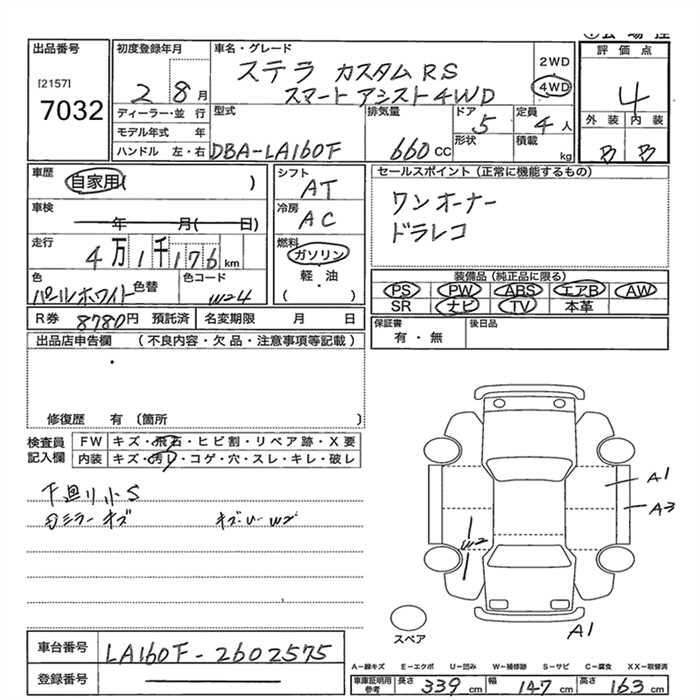 出品番号
[2157]
7032
初度登録年月
2 8月
車名・グレード
ステラ カスタムRS
スマートアシスト4WD
2WD
4WD
評価点
4
外装 内装
B B
ディーラー・並行
モデル年式 年
ハンドル 左・右
型式
DBA-LA160F
排気量
660cc
ドア 5
形状
定員 4人
積載 kg
車歴
自家用( )
車検
年 月( 日)
走行
4万1千176km
色
パールホワイト
色替
色コード
W24
シフト
AT
冷房
AC
燃料
ガソリン
軽・油
( )
セールスポイント(正常に機能するもの)
ワンオーナー
ドラレコ
装備品(純正品に限る)
PS PW ABS エアB AW
SR ナビ TV 本革
R券 8780円 預託済
名変期限 月 日
保証書
有・無
後日品
出品店申告欄 (不良内容・欠品・注意事項等記載)
修復歴 有 (箇所 )
検査員
記入欄
FW キズ・飛石・ヒビ割・リペア跡・X要
内装 キズ・汚レ・コゲ・穴・スレ・キレ・破レ
下廻り小S
ミラーキズ
W2
A1
A3
W2
A1
スペア
車台番号
LA160F-2602575
登録番号
A−線キズ E−エクボ U−凹み W−補修跡 S−サビ C−腐食 XX−取替済
車庫証明用
参考
長さ 339cm 幅 147cm 高さ 163cm